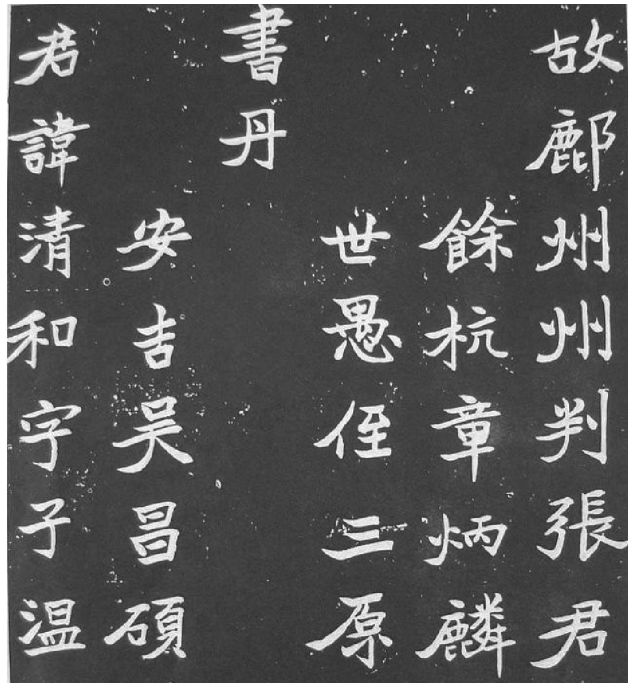 故鄜州州判張君
餘杭章炳麟
世愚侄三原
書丹
安吉吴昌碩
君諱清和字子温